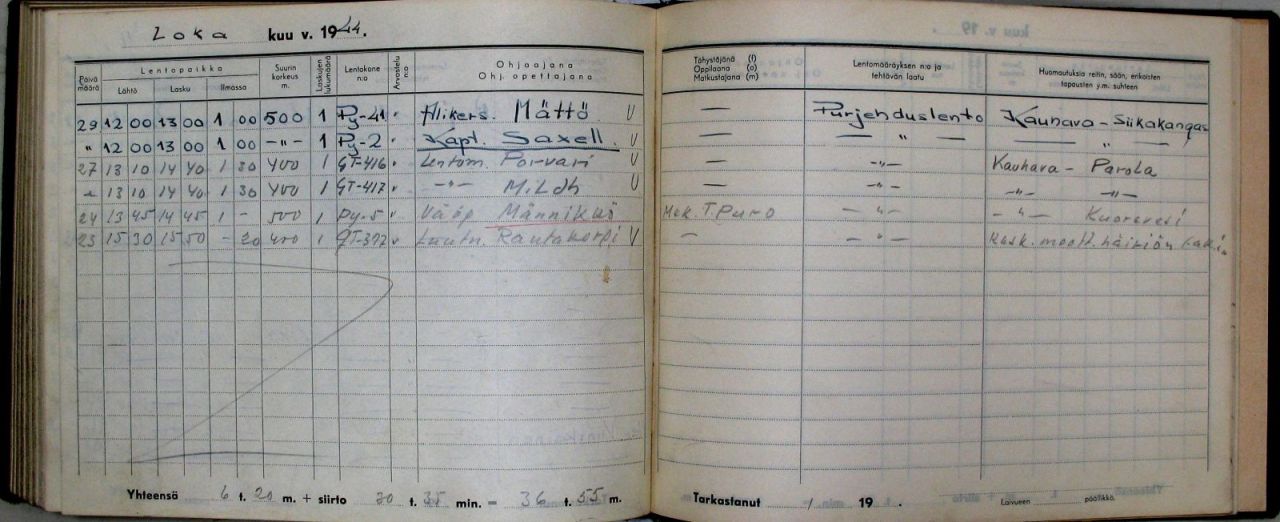 Loka kuu v. 1944.
Päivä määrä Lentopaikka Suurin korkeus m. Laskujen lukumäärä Lentokone n:o Arvostelu n:o Ohjaajana Ohj. opettajana
Lähtö Lasku Ilmassa
29 12 00 13 00 1 00 500 1 Py-41 " Alikers. Mättö V
" 12 00 13 00 1 00 -"- 1 Py-2 " Kapt. Saxell. V
27 13 10 14 40 1 30 400 1 GT-416 " Lentom. Porvari V
" 13 10 14 40 1 30 400 1 GT-417 " -"- Mildh V
24 13 45 14 45 1 - 500 1 Py-5 " Vääp. Männikkö
23 15 30 15 50 - 20 400 1 GT-372 " Luutn. Rautakorpi V
Yhteensä 6 t. 20 m. + siirto 30 t. 35 min. = 36 t. 55 m.
kuu v. 19 .
Tähystäjänä (t) Oppilaana (o) Matkustajana (m) Lentomääräyksen n:o ja tehtävän laatu Huomautuksia reitin, sään, erikoisten tapausten y.m. suhteen
— Purjehduslento Kauhava - Siikakangas
— — " — — " —
— -"- Kauhava - Parola
— -"- -"- -"-
Mek. T. Puro - " - - " - Kuorevesi
— - " - Kesk. moott. häiriön tak.
Tarkastanut / 19 .
Laivueen päällikkö.